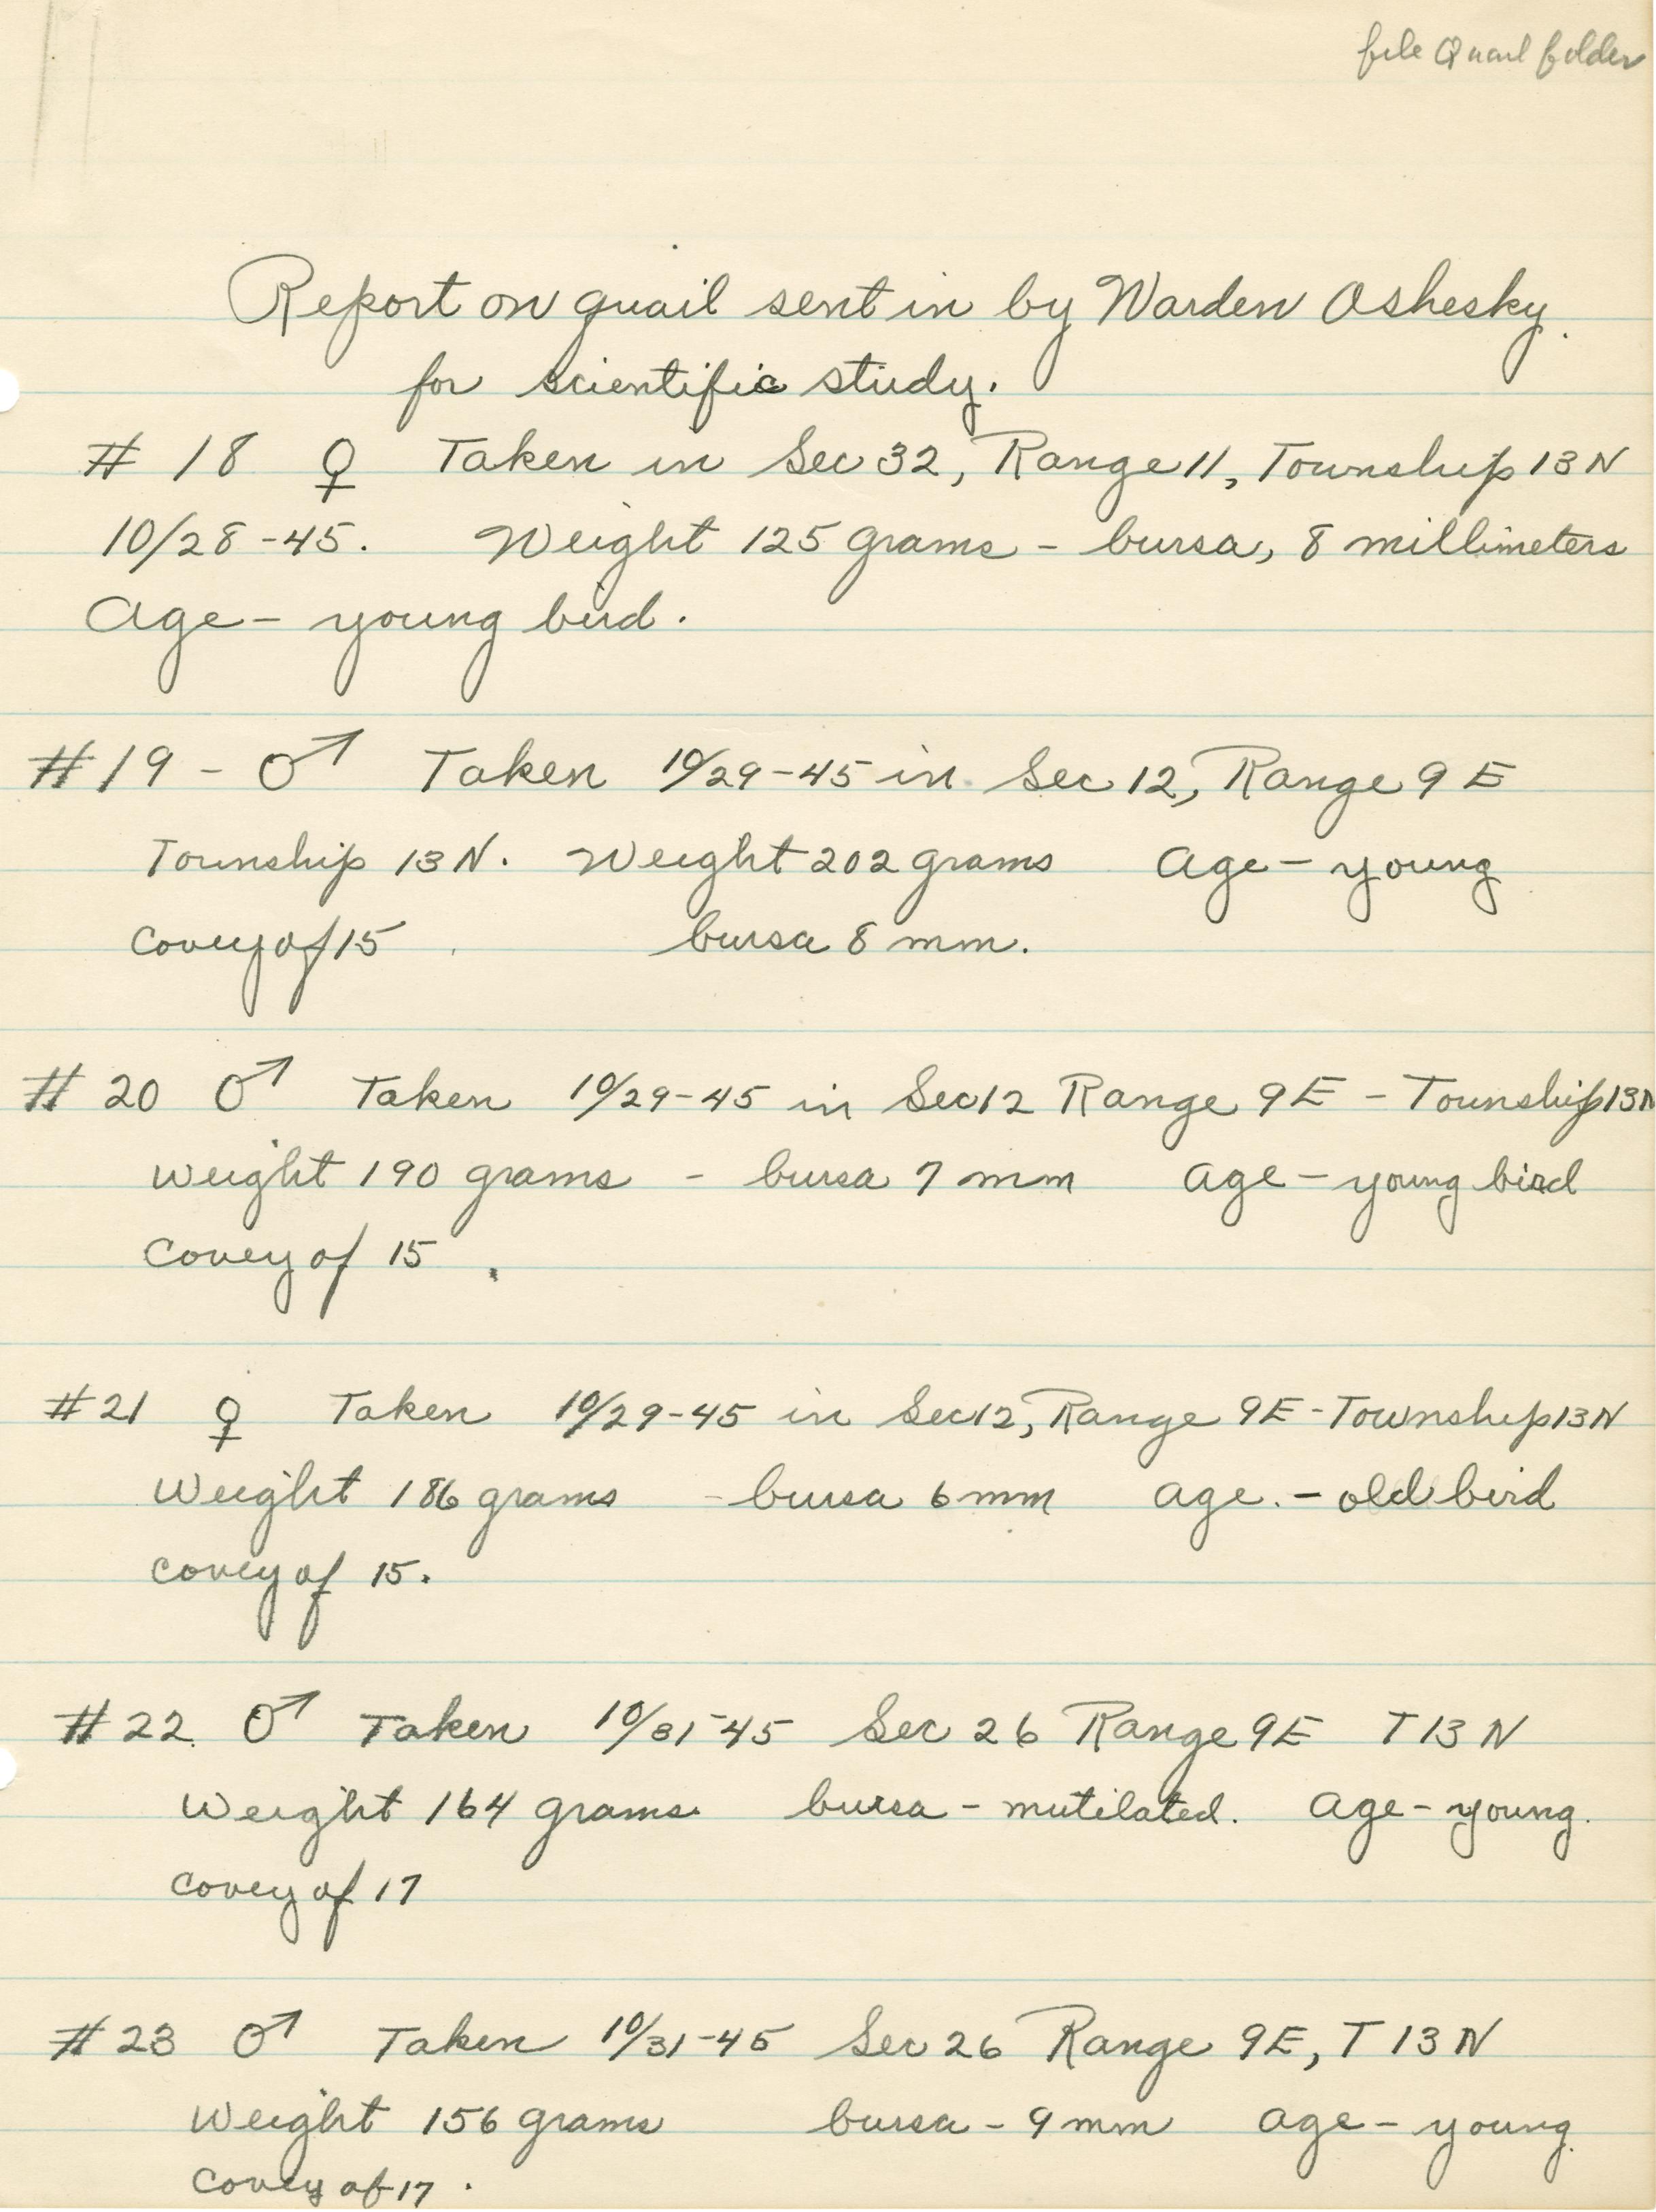 file Quail folder
Report on quail sent in by Warden Oshesky
for scientific study.
# 18 ♀ Taken in Sec 32, Range 11, Township 13 N
10/28-45. Weight 125 grams - bursa, 8 millimeters
Age - young bird.
#19 - ♂ Taken 10/29-45 in Sec 12, Range 9 E
Township 13 N. Weight 202 grams Age - young
covey of 15 bursa 8 mm.
# 20 ♂ Taken 10/29-45 in Sec 12 Range 9E - Township 13N
Weight 190 grams - bursa 7 mm age - young bird
covey of 15
#21 ♀ Taken 10/29-45 in Sec 12, Range 9E - Township 13N
Weight 186 grams - bursa 6 mm age. - old bird
covey of 15.
#22 ♂ Taken 10/31-45 Sec 26 Range 9E T 13 N
Weight 164 grams bursa - mutilated. age - young.
covey of 17
#23 ♂ Taken 10/31-45 Sec 26 Range 9E, T 13 N
Weight 156 grams bursa - 9 mm age - young
covey of 17.